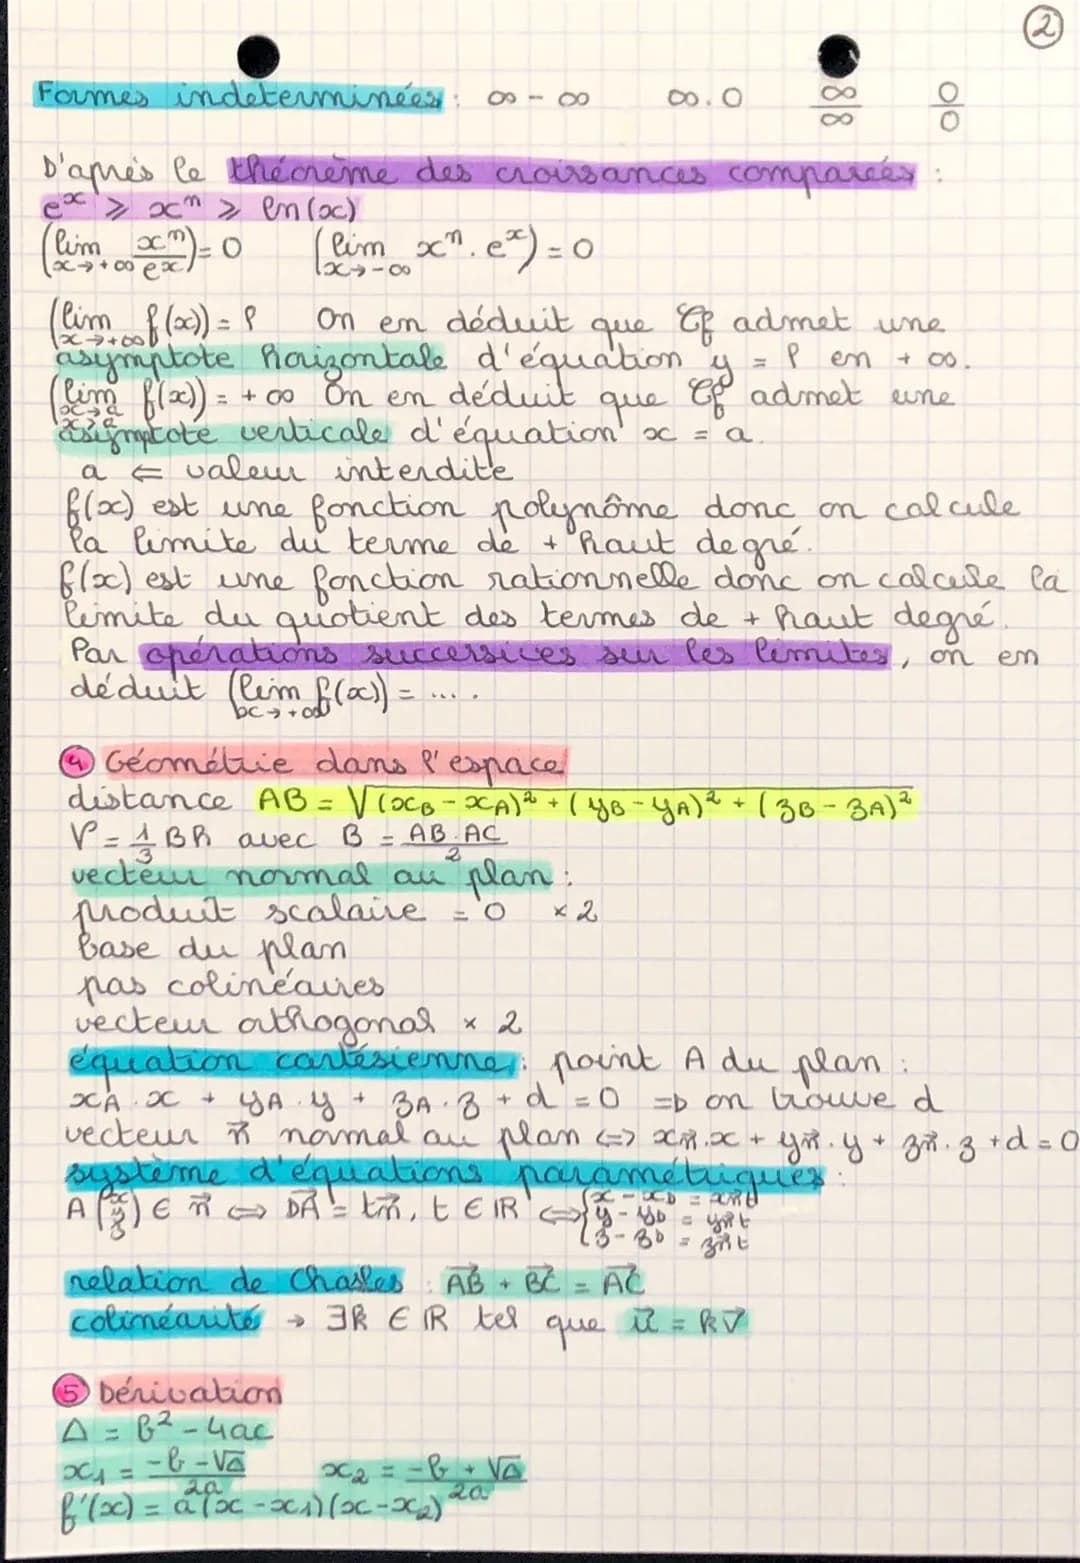 2
Formes indeterminées : ∞ - ∞   ∞.0   ∞/∞   0/0
D'après le théorème des croissances comparées :
e^x ⩾ x^n ⩾ ln(x)
(lim x→+∞ x^n/e^x) = 0   (lim x→-∞ x^n . e^x) = 0
(lim x→+∞ f(x)) = l   On en déduit que Cf admet une
asymptote horizontale d'équation y = l en + ∞.
(lim x→a x>a f(x)) = + ∞ On en déduit que Cf admet une
asymptote verticale d'équation x = a.
a ⇐ valeur interdite
f(x) est une fonction polynôme donc on calcule
la limite du terme de + haut degré.
f(x) est une fonction rationnelle donc on calcule la
limite du quotient des termes de + haut degré.
Par opérations successives sur les limites, on en
déduit (lim x→+∞ f(x)) = ....
4 Géométrie dans l'espace
distance AB = √(xB - xA)² + (yB - yA)² + (zB - zA)²
V = 1/3 Bh avec B = AB.AC/2
vecteur normal au plan :
produit scalaire = 0   x 2
base du plan
pas colinéaires
vecteur orthogonal x 2
équation cartésienne : point A du plan :
xA . x + yA . y + zA . z + d = 0 => on trouve d
vecteur n⃗ normal au plan <=> xn⃗.x + yn⃗.y + zn⃗.z + d = 0
système d'équations paramétriques :
A (x y z) ∈ n⃗ ⇔ DA⃗ = tn⃗, t ∈ ℝ ⇔ { x - xD = xn⃗t
y - yD = yn⃗t
z - zD = zn⃗t
relation de Chasles : AB⃗ + BC⃗ = AC⃗
colinéarité → ∃k ∈ ℝ tel que u⃗ = kv⃗
5 Dérivation
Δ = b² - 4ac
x1 = -b - √Δ / 2a   x2 = -b + √Δ / 2a
f'(x) = a(x - x1)(x - x2)